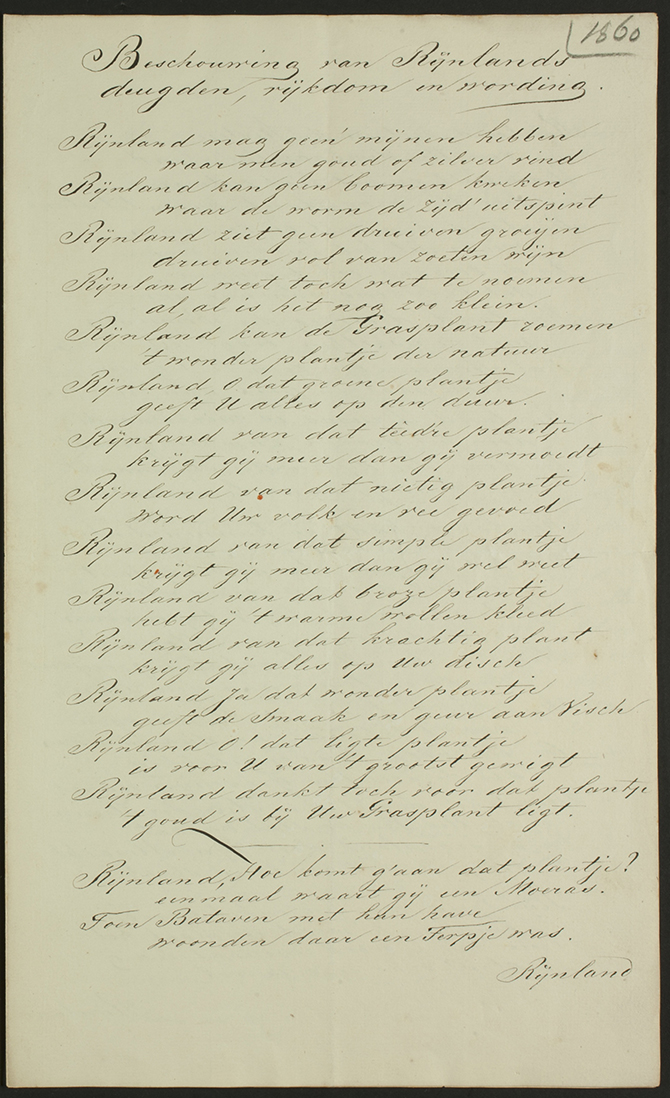 1860
Beschouwing van Rijnlands
deugden, rijkdom en wording.
Rijnland mag geen mijnen hebben
waar men goud of zilver vind
Rijnland kan geen boomen kweken
waar de worm de Zijd' uitspint
Rijnland ziet geen druiven groeijen
druiven vol van zoeten wijn
Rijnland weet toch wat te noemen
al, al is het nog zoo klein.
Rijnland kan de Grasplant roemen
't wonder plantje der natuur
Rijnland, O dat groene plantje
geeft U alles op den duur.
Rijnland van dat teed're plantje
krijgt gij meer dan gij vermoedt
Rijnland van dat nietig plantje
word Uw volk en vee gevoed
Rijnland van dat simple plantje
krijgt gij meer dan gij wel weet
Rijnland van dat broze plantje
hebt gij 't warme wollen kleed
Rijnland van dat krachtig plant
krijgt gij alles op Uw disch
Rijnland Ja dat wonder plantje
geeft de Smaak en geur aan Visch
Rijnland O! dat ligte plantje
is voor U van 't grootst gewigt
Rijnland dankt toch voor dat plantje
't goud is bij Uw Grasplant ligt.
Rijnland, Hoe komt g'aan dat plantje?
eenmaal waart gij een Moeras.
Toen Bataven met hun have
woonden daar een Terpje was.
Rijnland